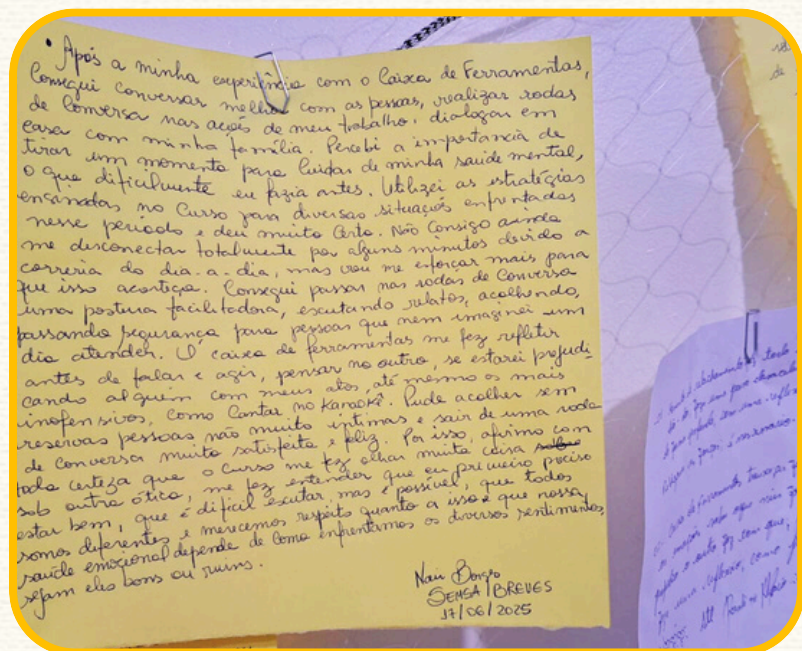 • Após a minha experiência com o Caixa de Ferramentas,
Consegui conversar melhor com as pessoas, realizar rodas
de Conversa nas ações de meu trabalho, dialogar em
casa com minha família. Percebi a importancia de
tirar um momento para Cuidar de minha saúde mental,
o que dificilmente eu fazia antes. Utilizei as estratégias
ensinadas no Curso para diversas situações enfrentadas
nesse período e deu muito Certo. Não Consigo ainda
me desconectar totalmente por alguns minutos devido a
correria do dia-a-dia, mas vou me esforçar mais para
que isso aconteça. Consegui passar nas rodas de Conversa
uma postura facilitadora, escutando relatos, acolhendo,
passando segurança para pessoas que nem imaginei um
dia atender. O caixa de ferramentas me fez refletir
antes de falar e agir, pensar no outro, se estarei prejudi
cando alguém com meus atos, até mesmo os mais
inofensivos, como Cantar no Karaokê. Pude acolher sem
reservas pessoas não muito íntimas e sair de uma roda
de conversa muito satisfeita e feliz. Por isso, afirmo com
toda certeza que o curso me fez olhar muita coisa
sob outra ótica, me fez entender que eu primeiro preciso
estar bem, que é difícil escutar, mas é possível, que todos
somos diferentes e merecemos respeito quanto a isso e que nossa
saúde emocional depende de como enfrentamos os diversos sentimentos,
sejam eles bons ou ruins.
SEMSA/BREVES
17/06/2025